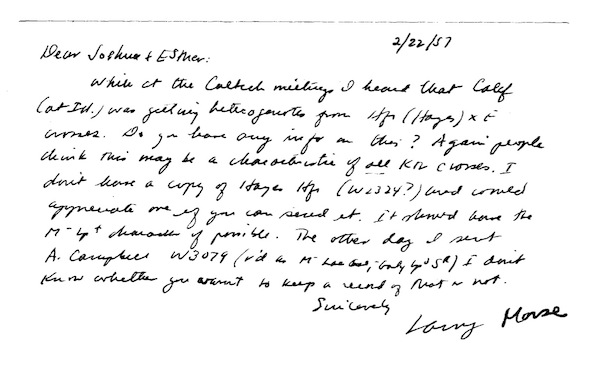 2/22/57
Dear Joshua & Esther:
While at the Caltech meetings I heard that Calif
(at Id.) was getting heterogenotes from Hfr (Hayes) x F-
crosses. Do you have any info on this? Again people
think this may be a characteristic of all K12 crosses. I
don't have a copy of Hayes Hfr (W2324?) and would
appreciate one if you can send it. It should have the
M- Lp+ character if possible. The other day I sent
A. Campbell W3079 (r'd as M- Lp+ SR) I don't
know whether you want to keep a record of that or not.
Sincerely
Larry Morse